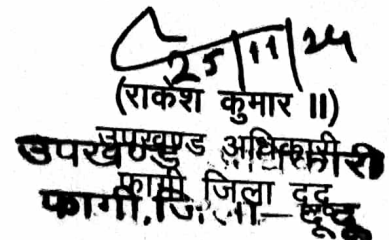 25/11/24
(राकेश कुमार II)
उपखण्ड अधिकारी
फागी जिला दूदू
उपखण्ड
फागी, जिला – दूदू